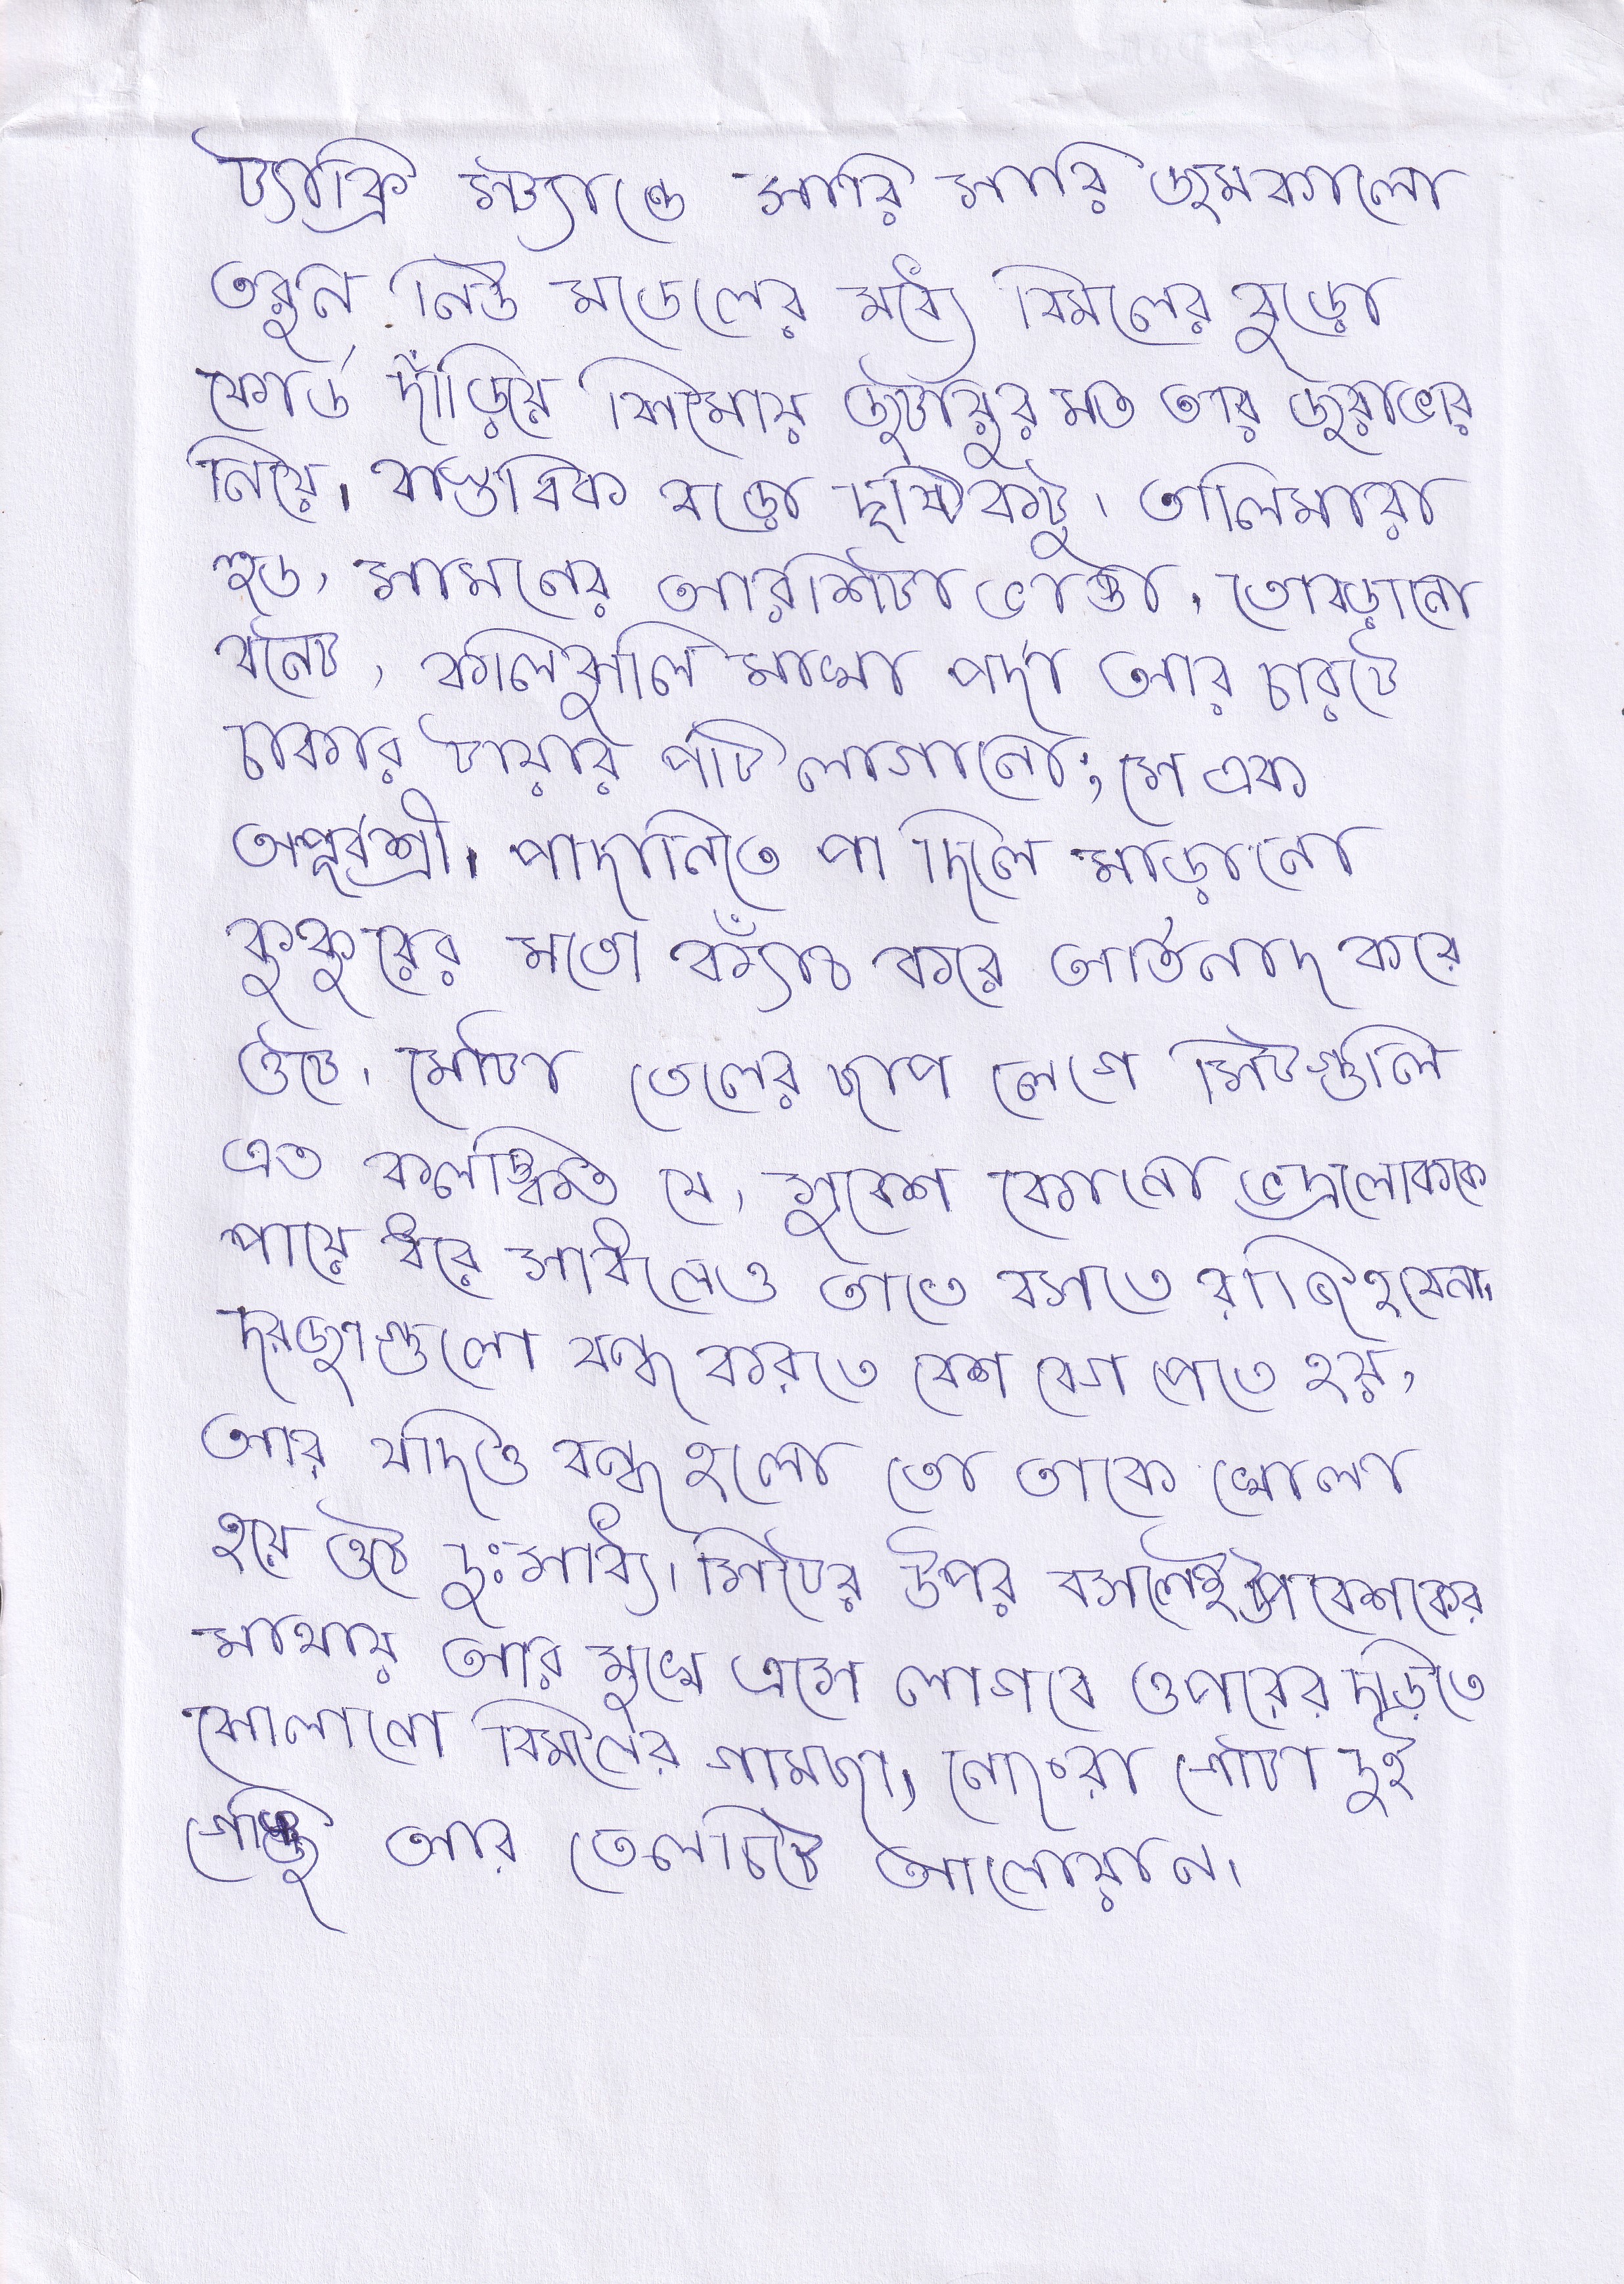 ট্যাক্সি স্ট্যাণ্ডে সারি সারি জমকালো
তরুন নিউ মডেলের মধ্যে বিমলের বুড়ো
ফোর্ড দাঁড়িয়ে ঝিমোয় জটায়ুর মত তার জরাভার
নিয়ে। বাস্তবিক বড়ো দৃষ্টিকটু। তালিমারা
হুড, সামনের আরশিটা ভাঙা, তোবড়ানো
বনেট, কালিঝুলি মাখা পর্দা আর চারটে
চাকার টায়ার পটি লাগানো; সে এক
অপূর্বশ্রী। পাদানিতে পা দিলে মাড়ানো
কুকুরের মতো ক্যাঁচ করে আর্তনাদ করে
ওঠে। মোটা তেলের ছাপ লেগে সিটগুলি
এত কলঙ্কিত যে, সুবেশ কোনো ভদ্রলোককে
পায়ে ধরে সাধলেও তাতে বসতে রাজি হবেনা।
দরজাগুলো বন্ধ করতে বেশ বেগ পেতে হয়,
আর যদিও বন্ধ হলো তো তাকে খোলা
হয়ে ওঠে দুঃসাধ্য। সিটের উপর বসলেই উপবেশকের
মাথায় আর মুখে এসে লাগবে ওপরের দড়িতে
ঝোলানো বিমলের গামছা, নোংরা গোটা দুই
গেঞ্জি আর তেলচিটে আলোয়ান।